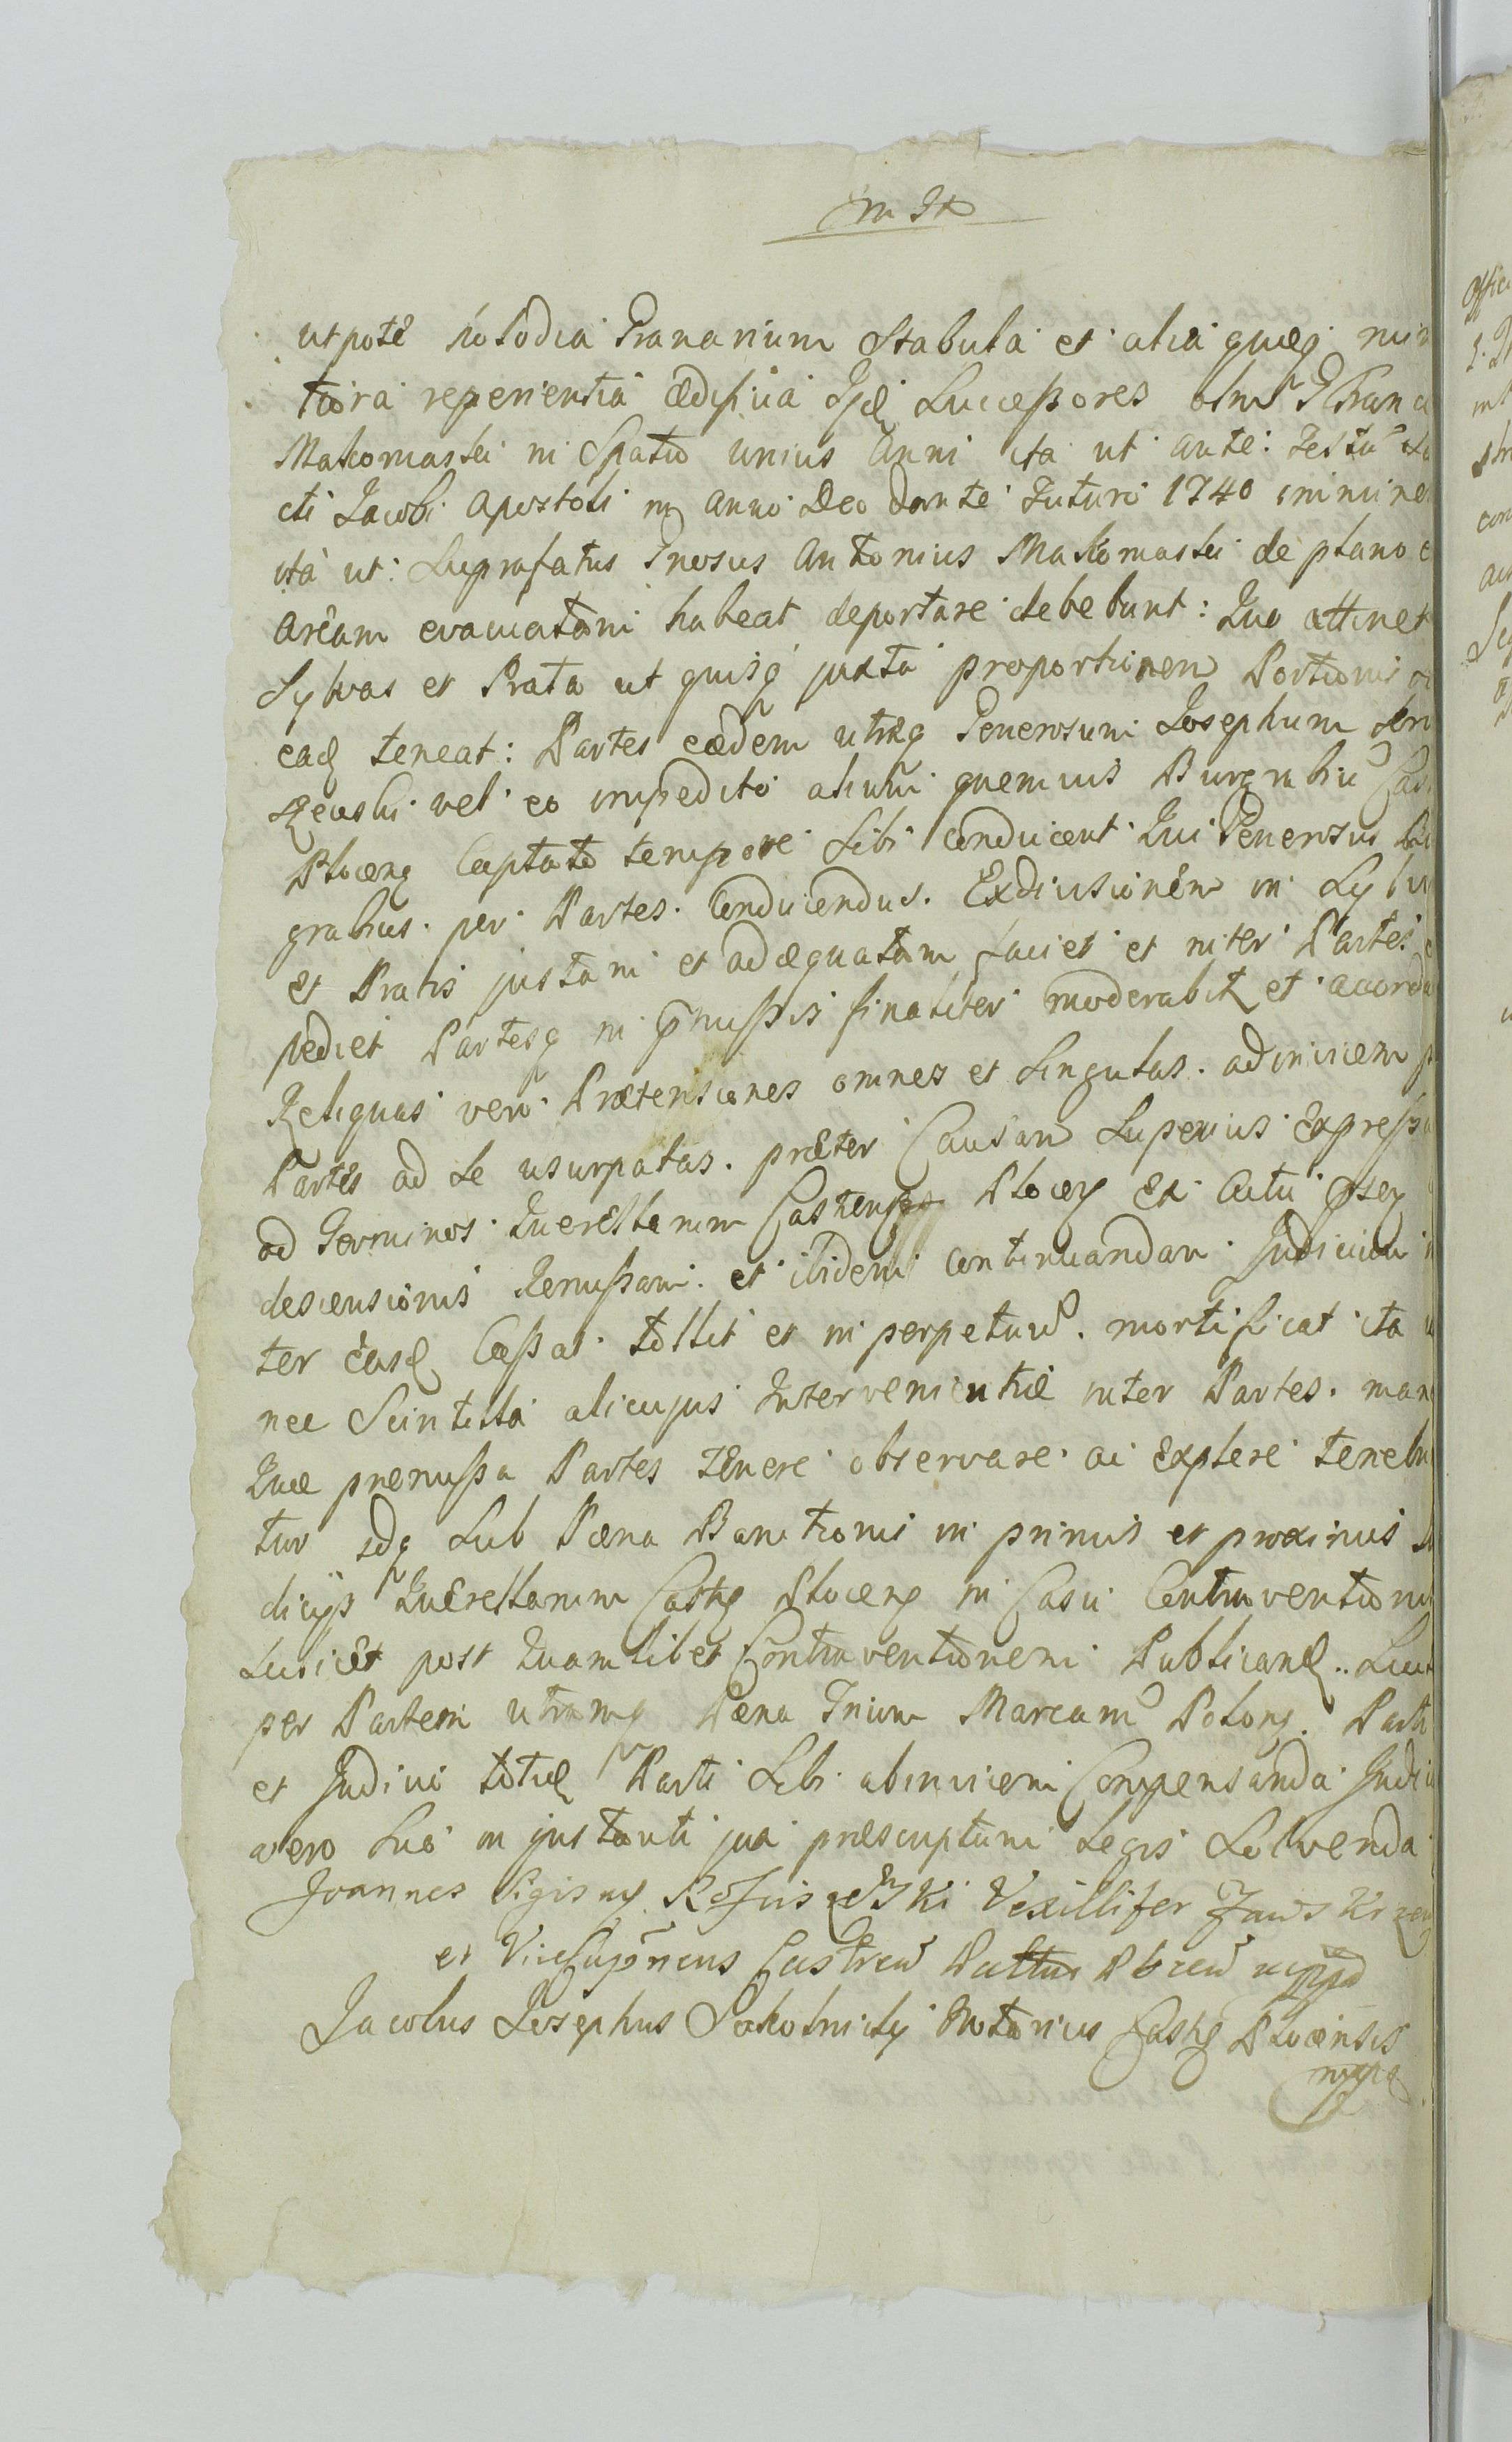 utpote Granarium Stabula et alia quæq min
tiora reperientia ædificia Ipsi Successores olim G Franci
Makomaski in Spatio unius Anni ita ut ante Festū
cti Jacobi Apostoli in Anno Deo dante futuro 1740 inminen
ità ut Suprafatus Gnosus Antonius Makomaski de plano
Aream evacuatam habeat deportare debebunt: Quo attinet
Sylvas et Prata ut quisq juxta proportionem Portionis
eaq teneat: Partes eædem utræq Generosum Josephum
vel eo impedito alium quemvis Burgrabiū Cas
Plocen Captato tempore Sibi conducent Qui Generosus Bu
grabius per Partes conducendus. Exdivisionem in Sylvi
et Pratis justam et adæquatam faciet et inter Partes
pediet Partesq in pmissis finaliter moderabit et accorda
Reliquas vero Prætensiones omnes et Singulas ad invicem p
Partes ad Se usurpatas præter Causam Superius Expressa
ad Terminos Querellarum Castrens Plocen Ex
descensionis Remissam et ibidem continuandam Judicium in
ter easq Cassat tollit et in perpetuū mortificat ita
nec Scintilla alicujus Intervenientiæ inter Partes man
Quæ premissa Partes tenere observare ac Explere tenebu
tur idq Sub Pæna Banitionis in primis et proximis
dicijs Querellarum Castre Plocen in Casu Contraventionis
Scilicet post Quamlibet Contraventionem Publicand Luen
per Partem utramq Pæna Trium Marcarū Polon Parti
et Judicio totid Parti Sibi abinvicem Compensanda Judici
vero Suo in justanti jux præscriptum Legis Solvenda
Joannes Sigism Kosciszewski Vexillifer Zawskrzen
et ViceCapneus Castren Palttus Plocen mppa
Jacobus Josephus Sokolnicki Notarius Castr Plocensis
mppa